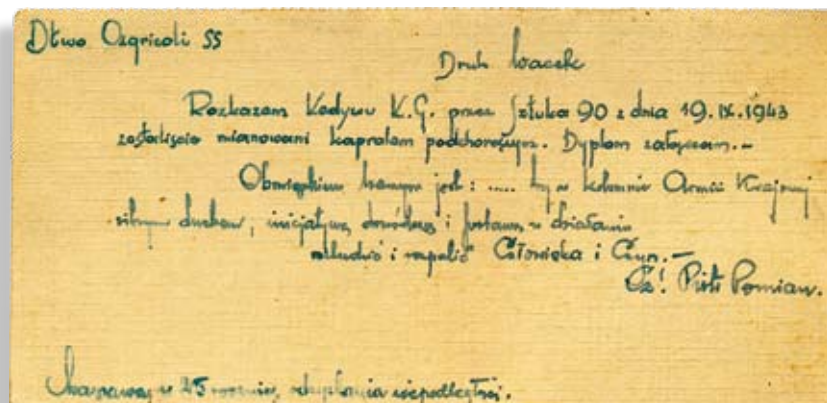 Dtwo Ozgricoli SS
Druh Wacek
Rozkazem Kedywu K.G. przez Sztuka 90 z dnia 19.IX.1943
zostaliście mianowani kapralem podchorążym. Dyplom załączam.-
Obowiązkiem Waszym jest: ..... by w kolumnie Armii Krajowej
silnym duchem, inicjatywą dowódczą i postawą w działaniu
wzbudzić i zapalić Człowieka i Czyn.-
Cz! Piotr Pomian.
w 25 rocznicę odzyskania niepodległości.